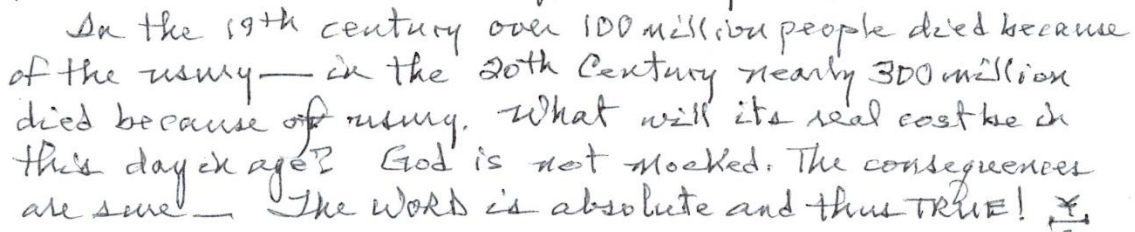 In the 19th century over 100 million people died because
of the usury — in the 20th Century nearly 300 million
died because of usury. What will its real cost be in
this day in age? God is not mocked. The consequences
are sure — The WORD is absolute and thus TRUE!